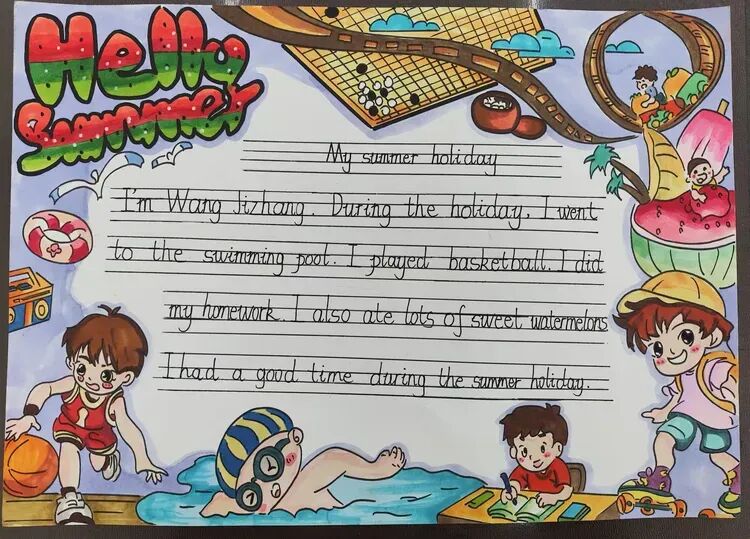 Hello
Summer
My summer holiday
I'm Wang Jizhang. During the holiday, I went
to the swimming pool. I played basketball. I did
my homework. I also ate lots of sweet watermelons
I had a good time during the summer holiday.